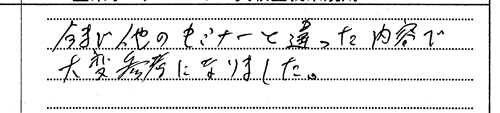 今まで他のセミナーと違った内容で
大変参考になりました。